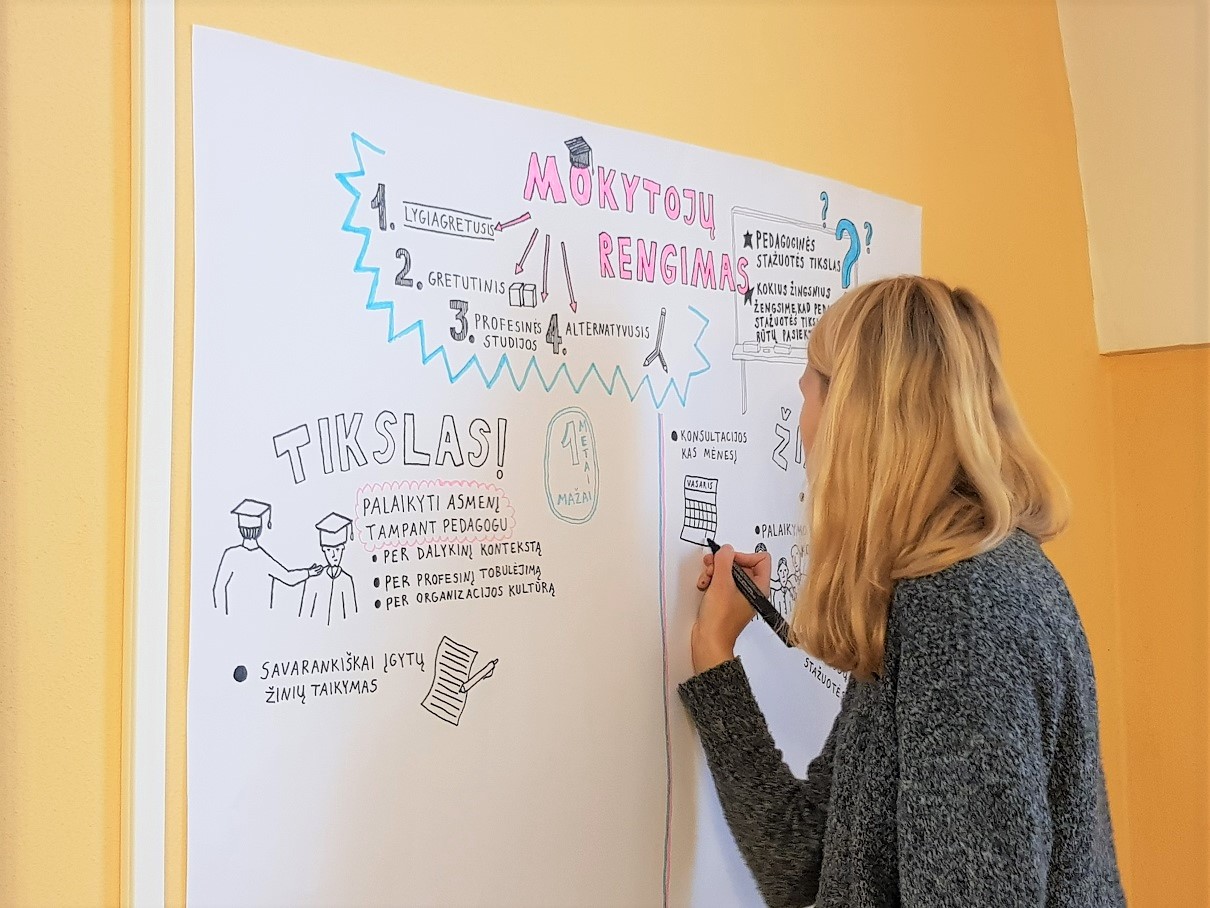 MOKYTOJŲ
RENGIMAS
1. LYGIAGRETUSIS
2. GRETUTINIS
3. PROFESINĖS
STUDIJOS
4. ALTERNATYVUSIS
? ? ?
★ PEDAGOGINĖS
STAŽUOTĖS TIKSLAS
★ KOKIUS ŽINGSNIUS
ŽENGSIME, KAD
STAŽUOTĖS
BŪTŲ
TIKSLAS!
1 METAI
MAŽAI
PALAIKYTI ASMENĮ
TAMPANT PEDAGOGU
• PER DALYKINĮ KONTEKSTĄ
• PER PROFESINĮ TOBULĖJIMĄ
• PER ORGANIZACIJOS KULTŪRĄ
• SAVARANKIŠKAI ĮGYTŲ
ŽINIŲ TAIKYMAS
• KONSULTACIJOS
KAS MĖNESĮ
VASARIS